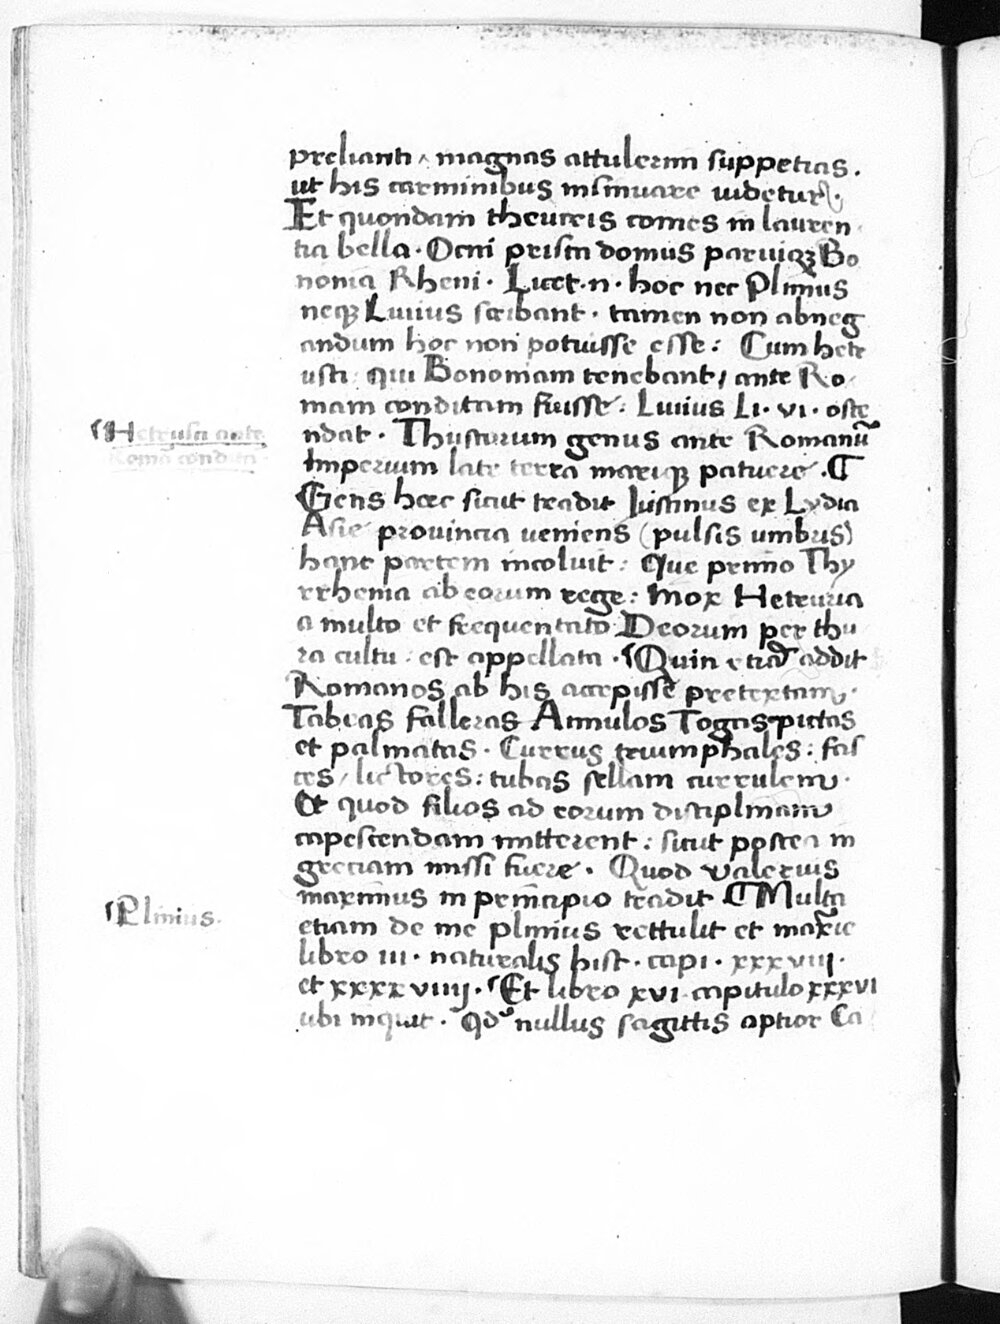 prelianti magnas attulerint suppetias.
ut his carminibus insinuare uidetur.
Et quondam theucris comes in lauren
tia bella. Ocni prisca domus paruiqꝫ Bo
nonia Rheni. Licet .n. hoc nec Plinius
neqꝫ Liuius scribant. tamen non abneg
andum hoc non potuisse esse: Cum hetr
usci qui Bononiam tenebant, ante Ro
mam conditam fuisse: Liuius Li. vi. oste
ndat. Thuscorum genus ante Romanū
Imperium late terra mariqꝫ patuere. ¶
Gens hæc sicut tradit Iustinus ex Lydia
Asie prouincia ueniens (pulsis umbris)
hanc partem incoluit: Que primo Thy
rrhenia ab eorum rege: mox Hetruria
a multo et frequentato Deorum per thu
ra cultu: est appellata. Quin etiā addit
Romanos ab his accepisse pretextam.
Tabras falleras Annulos Togas pictas
et palmatas. Currus triumphales: fas
ces, lictores: tubas sellam currulem.
Et quod filios ad eorum disciplinam
capescendam mitterent: sicut postea in
greciam missi fuere. Quod valerius
maximus in principio tradit ¶ Multa
etiam de me plinius rettulit et maxīe
libro iii. naturalis hist. capi. xxxviij.
et xxxxviiij. Et libro xvi capitulo xxxvi
ubi inquit. Qd nullus sagittis aptior Ca
Hetrusci ante
Romā condita
Plinius.